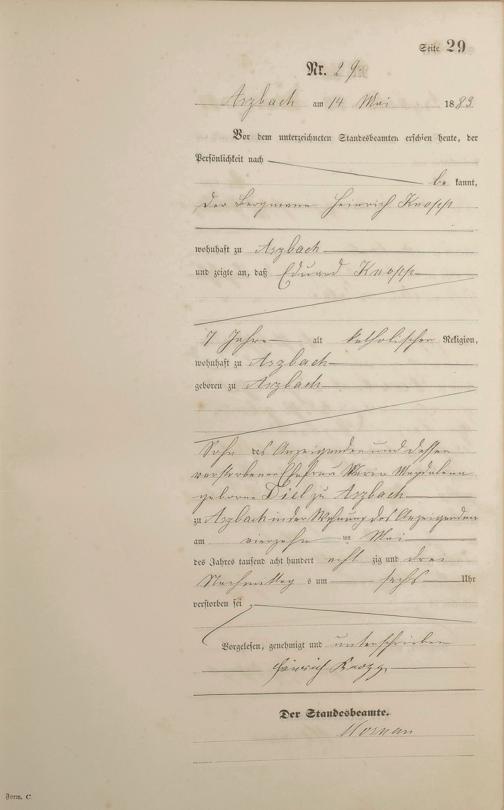 Seite 29
Nr. 29.
Arzbach am 14 Mai 1883
Vor dem unterzeichneten Standesbeamten erschien heute, der
Persönlichkeit nach
be kannt,
der Bergmann Heinrich Knopp
wohnhaft zu Arzbach
und zeigte an, daß Eduard Knopp
7 Jahre alt katholischer Religion,
wohnhaft zu Arzbach
geboren zu Arzbach
Sohn des Anzeigenden und dessen
verstorbener Ehefrau Maria Magdalena
geborne Diel zu Arzbach
zu Arzbach in der Wohnung des Anzeigenden
am vierzehn ten Mai
des Jahres tausend acht hundert acht zig und drei
Nachmittag s um sechs Uhr
verstorben sei
Vorgelesen, genehmigt und unterschrieben
Heinrich Knopp
Der Standesbeamte.
Form. C